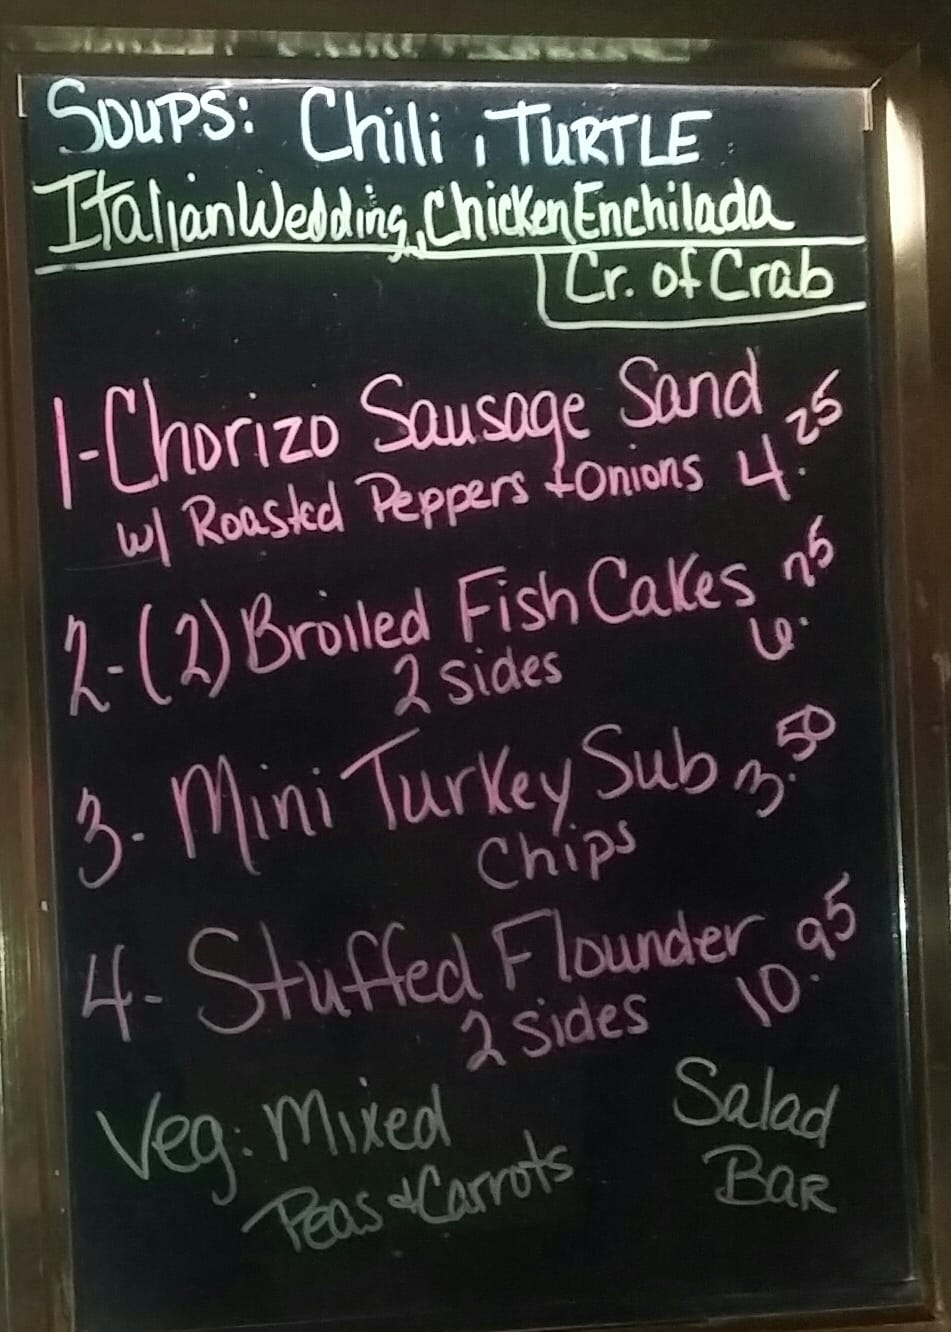 Soups: Chili, TURTLE
Italian Wedding, Chicken Enchilada
Cr. of Crab
1-Chorizo Sausage Sand
w/ Roasted Peppers + Onions 4.25
2-(2) Broiled Fish Cakes 6.25
2 sides
3- Mini Turkey Sub 3.50
Chips
4- Stuffed Flounder 10.95
2 sides
Veg: Mixed
Peas & Carrots
Salad
BAR